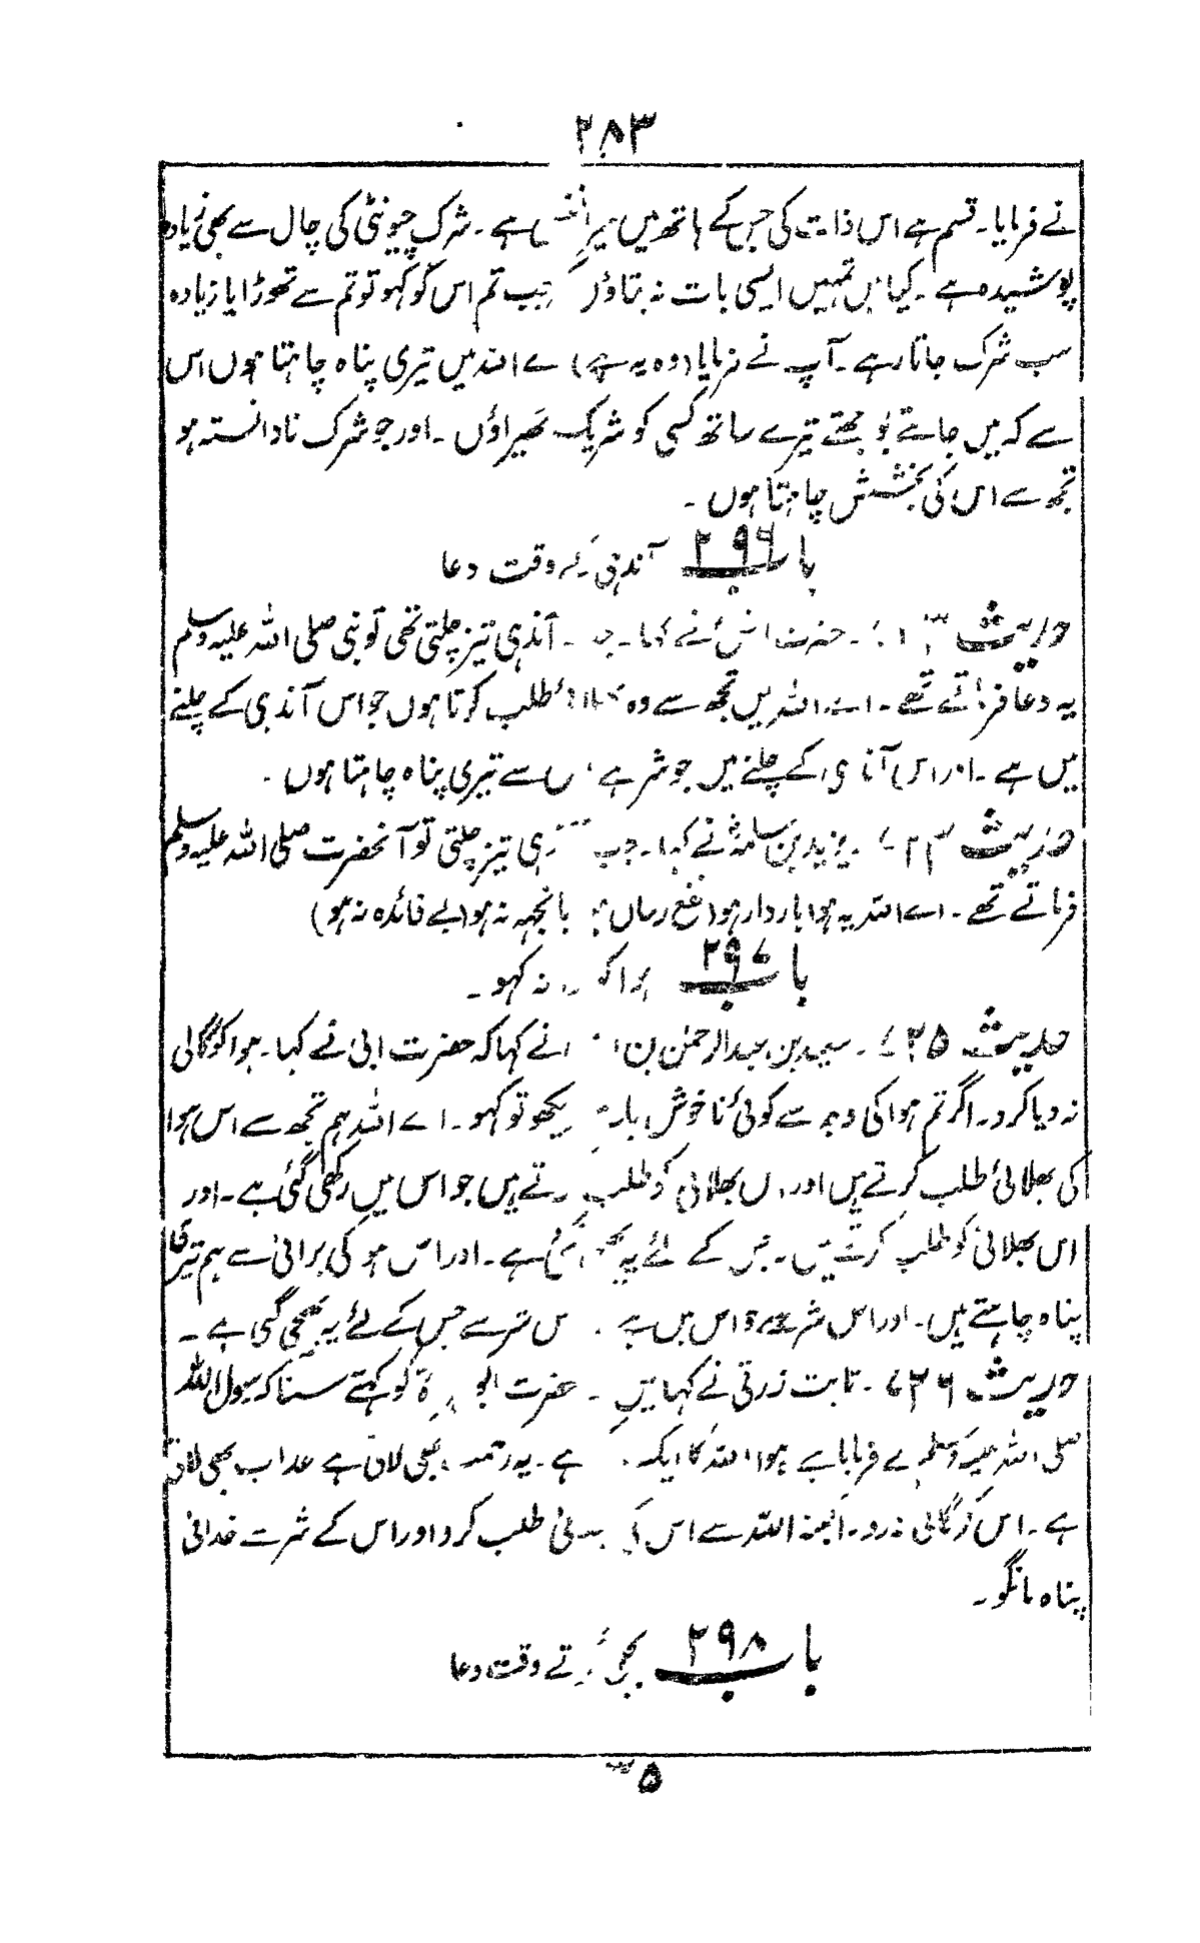 ۲۸۳
نے فرمایا۔ قسم ہے اس ذات کی جس کے ہاتھ میں میرا ہے۔ شرک چیونٹی کی چال سے بھی زیادہ
پوشیدہ ہے۔ کیا میں تمہیں ایسی بات نہ بتاؤں جب تم اس کو کہو تو تم سے تھوڑا یا زیادہ
سب شرک جاتا رہے۔ آپ نے فرمایا (وہ یہ ہے) اے اللہ میں تیری پناہ چاہتا ہوں اس
سے کہ میں جانتے بوجھتے تیرے ساتھ کسی کو شریک ٹھیراؤں۔ اور جو شرک نادانستہ ہو
تجھ سے اس کی بخشش چاہتا ہوں۔
باب ۲۹۶ آندہی کے وقت دعا
حدیث۔ حضرت انسؓ نے کہا۔ جب آندہی تیز چلتی تھی تو نبی صلی اللہ علیہ وسلم
یہ دعا فرماتے تھے۔ اے اللہ میں تجھ سے وہ بھلائی طلب کرتا ہوں جو اس آندہی کے چلنے
میں ہے۔ اور اس آندہی کے چلنے میں جو شر ہے اس سے تیری پناہ چاہتا ہوں۔
حدیث ۷۲۴۔ یزید بن سلمہؓ نے کہا۔ جب آندہی تیز چلتی تو آنحضرت صلی اللہ علیہ وسلم
فرماتے تھے۔ اے اللہ یہ ہوا باردار ہو (نفع رساں) بانجہہ نہ ہو (بے فائدہ نہ ہو)
باب ۲۹۷ ہوا کو نہ کہو۔
حدیث ۷۲۵۔ سعید بن عبدالرحمٰن بن نے کہا کہ حضرت ابی نے کہا۔ ہوا کو گالی
نہ دیا کرو۔ اگر تم ہوا کی وجہ سے کوئی ناخوش بات دیکھو تو کہو۔ اے اللہ ہم تجھ سے اس ہوا
کی بھلائی طلب کرتے ہیں اور اس بھلائی کو طلب کرتے ہیں جو اس میں رکھی گئی ہے۔ اور
اس بھلائی کو طلب کرتے ہیں۔ جس کے لئے یہ بھیجی گئی ہے۔ اور اس ہوا کی برائی سے ہم تیری
پناہ چاہتے ہیں۔ اور اس شر سے جو اس میں ہے اس شر سے جس کے لئے یہ بھیجی گئی ہے۔
حدیث ۷۲۶۔ ثابت زرقی نے کہا میں۔ حضرت ابو ہریرۃ کو کہتے سنا کہ رسول اللہ
صلی اللہ علیہ وسلم نے فرمایا ہے ہوا اللہ کا ایک ہے۔ یہ رحمت بھی لاتی ہے عذاب بھی لاتی
ہے۔ اس کو گالی نہ دو۔ البتہ اللہ سے اس کی بھلائی طلب کرو اور اس کے شر سے خدا کی
پناہ مانگو۔
باب ۲۹۸ بجلی گرتے وقت دعا